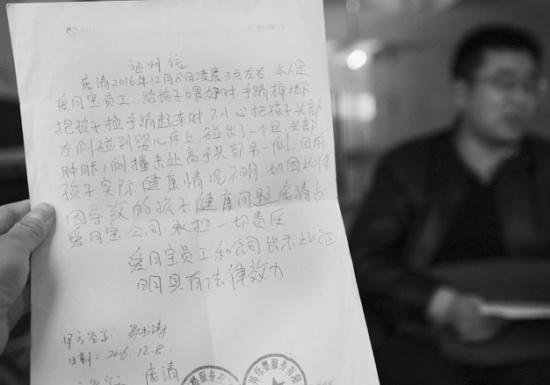 证明信
唐清2016年12月8日凌晨3点左右 本人是
爱月宝员工 给孩子喂奶时 手绢掉地下
把孩子 手绢起来时 不小心把孩子头部
左侧碰到婴儿床上 碰出了一个包 头部
肿胀 侧撞未处高于头部另一侧 目前
孩子实际健康情况不明 如因此体
因导致的孩子健康问题 唐清与
爱月宝公司 承担一切责任
爱月宝员工和公司出示此证
明具有法律效力
甲方签字:
日期: 2016.12.8
唐清
服务有